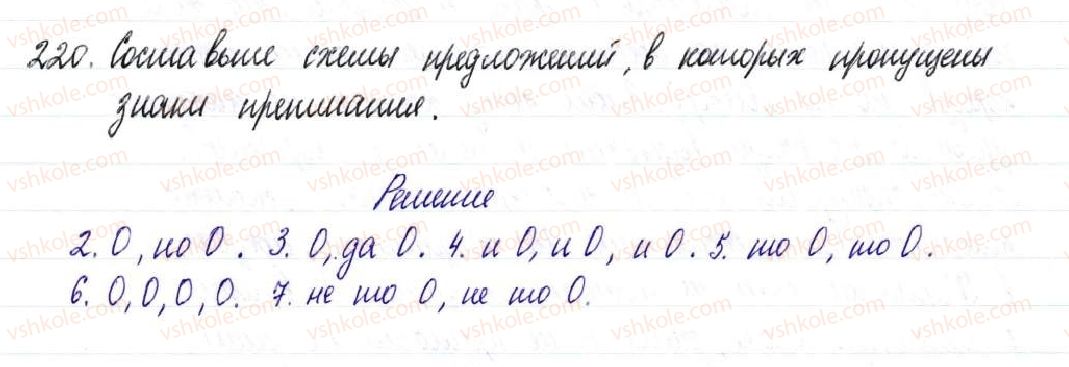 220. Составьте схемы предложений, в которых пропущены
знаки препинания.
Решение
2. О, но О. 3. О, да О. 4. и О, и О, и О. 5. то О, то О.
6. О, О, О, О. 7. не то О, не то О.
vshkole.com